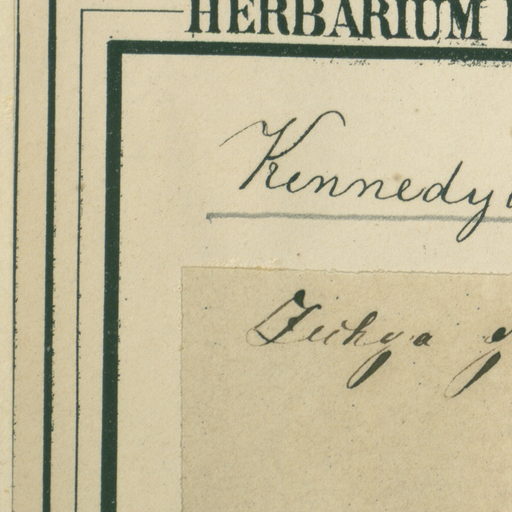 HERBARIUM
Kennedy
Zichya